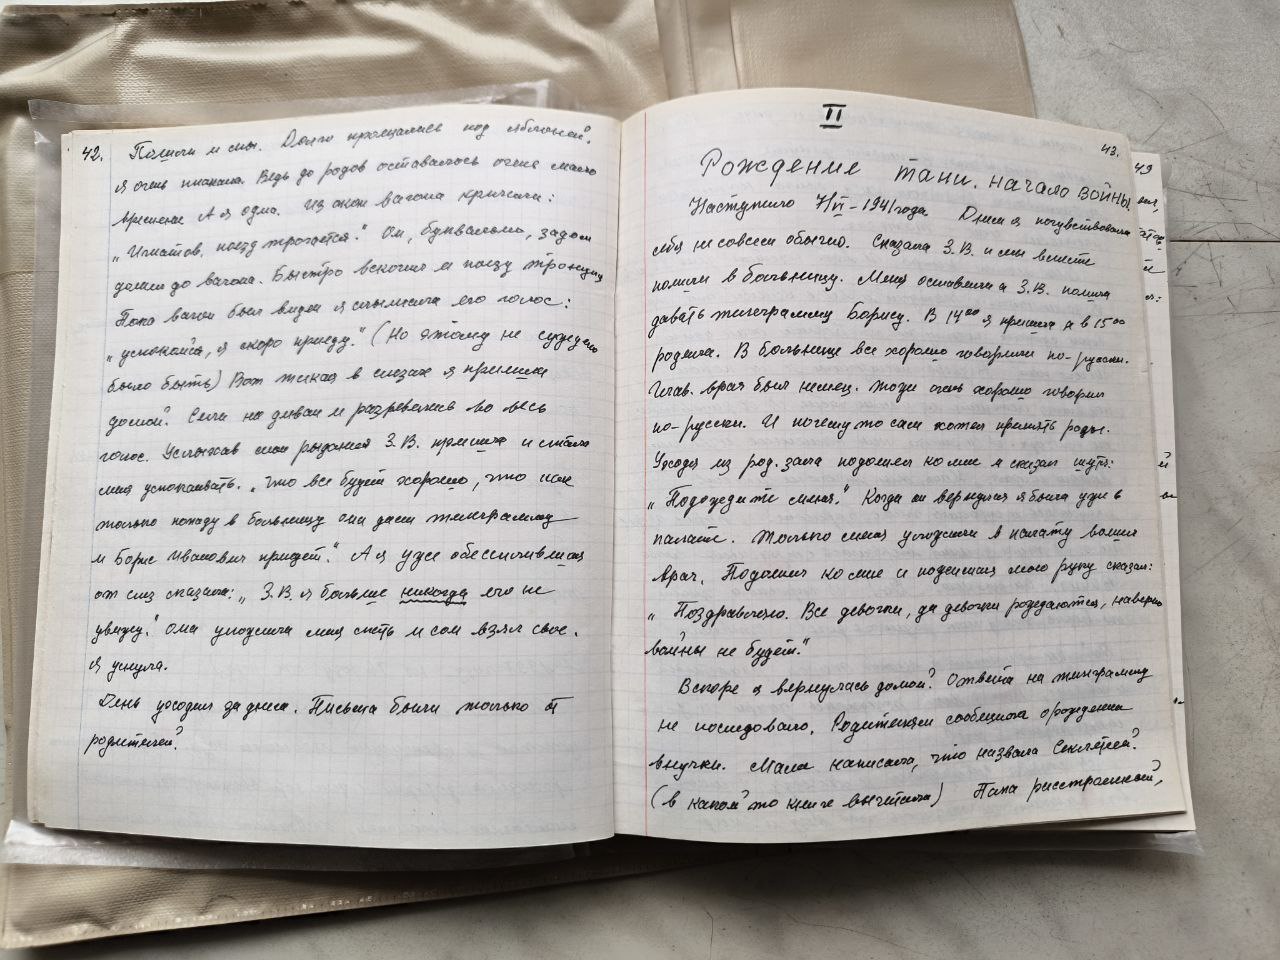 42.
Пошли и мы. Долго прощались под яблоней.
Я очень плакала. Ведь до родов оставалось очень мало
времени А я одна. Из окон вагона кричали:
„Игнатов, поезд трогается." Он, буквально, задом
дошел до вагона. Быстро вскочил и поезд тронулся
Пока вагон был виден я слышала его голос:
„успокойся, я скоро приеду." (Но этому не суждено
было быть) Вот такая в слезах я пришла
домой. Села на диван и разревелась во весь
голос. Услыхав мои рыдания З.В. пришла и стала
меня успокаивать. „Что все будет хорошо, что как
только попаду в больницу она даст телеграмму
и Борис Иванович приедет." А я уже обессилившая
от слез сказала: „З.В. я больше никогда его не
увижу." Она уложила меня спать и сон взял свое.
Я уснула.
День уходил за днем. Письма были только от
родителей.
II
43.
Рождение Тани. Начало войны.
Наступило 7/VI-1941 года. Днем я почувствовала
себя не совсем обычно. Сказала З.В. и мы вместе
пошли в больницу. Меня оставили а З.В. пошла
давать телеграмму Борису. В 14⁰⁰ я пришла а в 15⁰⁰
родила. В больнице все хорошо говорили по-русски.
Глав. врач был немец. Тоже очень хорошо говорил
по-русски. И почему то сам хотел принять роды.
Уходя из род. зала подошел ко мне и сказал шутя:
„Подождите меня." Когда он вернулся я была уже в
палате. Только меня уложили в палату вошел
врач. Подошел ко мне и подсказал мою руку сказал:
„Поздравляю. Все девочки, да девочки рождаются, наверно
войны не будет."
Вскоре я вернулась домой. Ответа на телеграмму
не последовало. Родителям сообщила о рождении
внучки. Мама написала, что назвала Секлетеей.
(в какой то книге вычитала) Папа расстроенный,
49